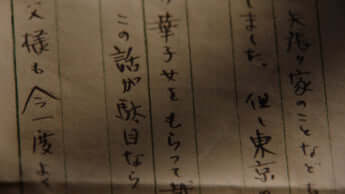 家のことなども
しました。但し東京の
華子女をもらって
この話が駄目なら
父様も今一度よく